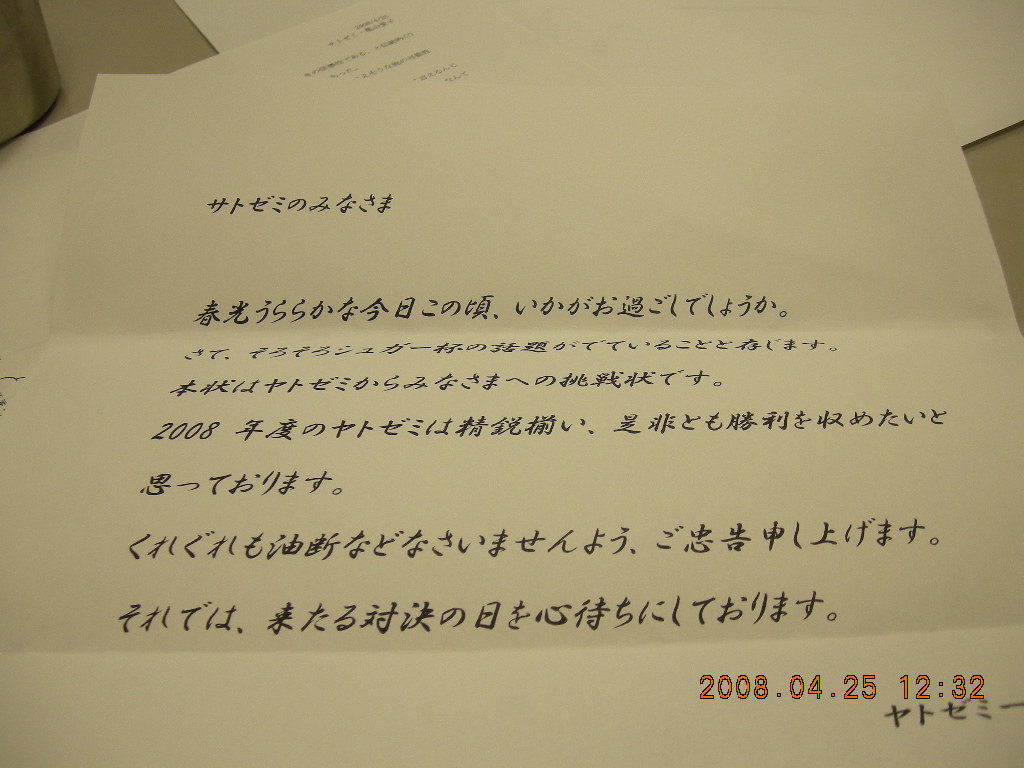 サトゼミのみなさま
春光うららかな今日この頃、いかがお過ごしでしょうか。
さて、そろそろシュガー杯の話題がでていることと存じます。
本状はヤトゼミからみなさまへの挑戦状です。
2008 年度のヤトゼミは精鋭揃い、是非とも勝利を収めたいと
思っております。
くれぐれも油断などなさいませんよう、ご忠告申し上げます。
それでは、来たる対決の日を心待ちにしております。
2008.04.25 12:32
ヤトゼミ一